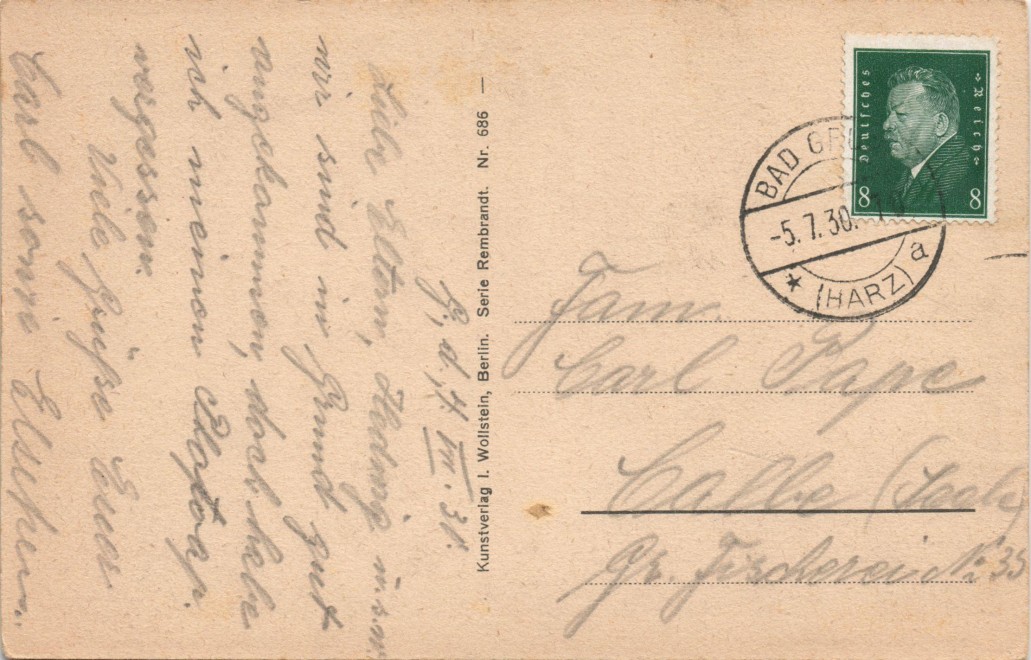 G., d., 4. VII. 30.
Liebe Eltern, Hedwig u.s.w.
wir sind in Grund gut
angekommen, doch habe
ich meinen
vergessen.
Viele Grüße Euer
Carl sowie
Kunstverlag J. Wollstein, Berlin. Serie Rembrandt. Nr. 686 —
Deutsches Reich
8 8
BAD GRU
-5.7.30.
* (HARZ) a
Fam.
Carl Pape
Calbe (Saale)
Gr. Fischerei Nr 35